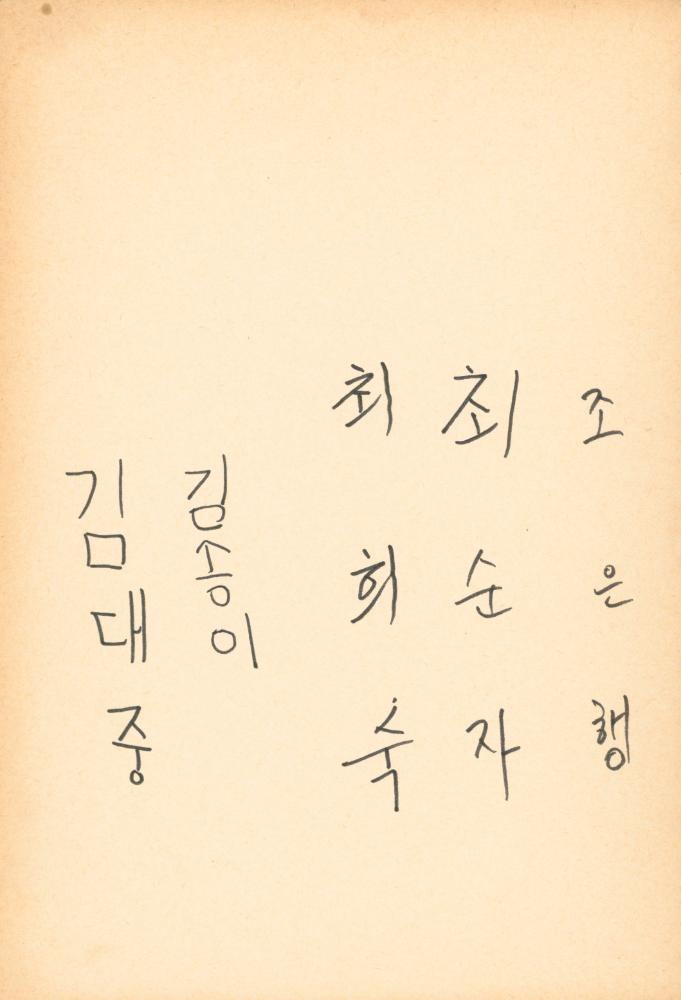 조은행
최순자
최희숙
김송이
김대중